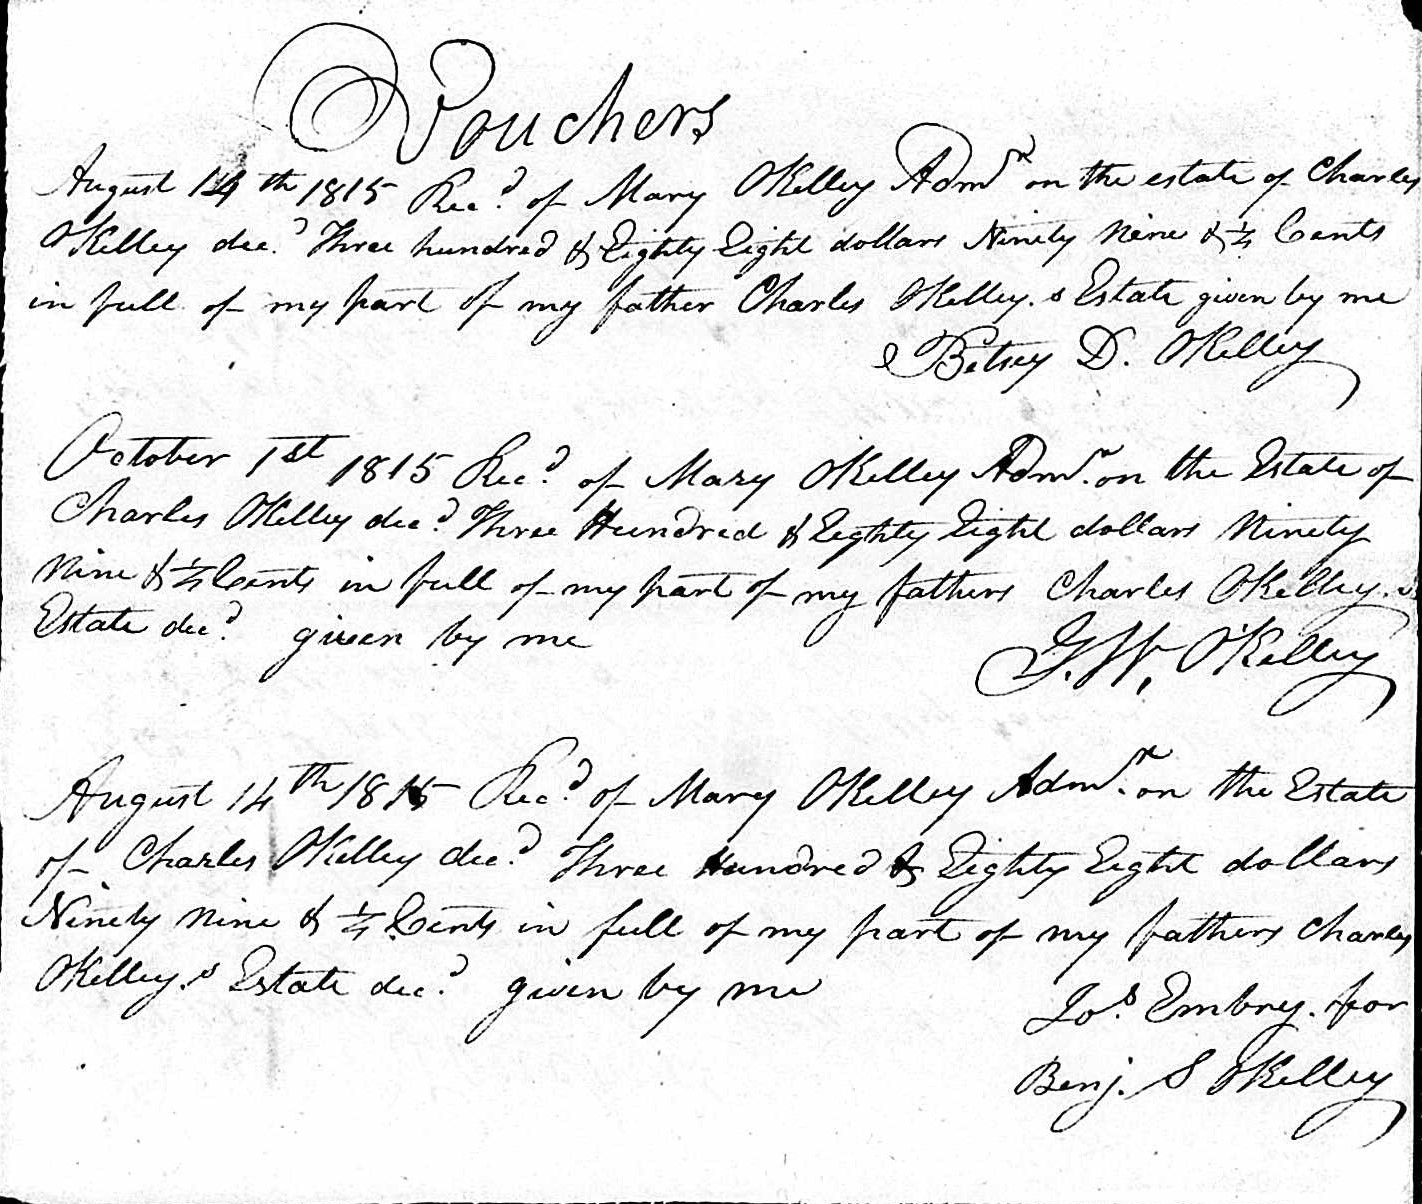 Vouchers
August 14th 1815 Recd of Mary OKelley Admr on the estate of Charles
OKelley decd Three hundred & Eighty Eight dollars Ninety Nine & ¼ Cents
in full of my part of my father Charles OKelley.s Estate given by me
Betsey D. OKelley
October 1st 1815 Recd of Mary OKelley Admr. on the Estate of
Charles OKelley decd Three Hundred & Eighty Eight dollars Ninety
Nine & ¼ Cents in full of my part of my fathers Charles OKelley.s
Estate decd given by me
G. W. O'Kelley
August 14th 1815 Recd of Mary OKelley Admr. on the Estate
of Charles OKelley decd Three Hundred & Eighty Eight dollars
Ninety Nine & ¼ Cents in full of my part of my fathers Charles
OKelley.s Estate decd given by me
Jos Embry. for
Benj. S OKelley